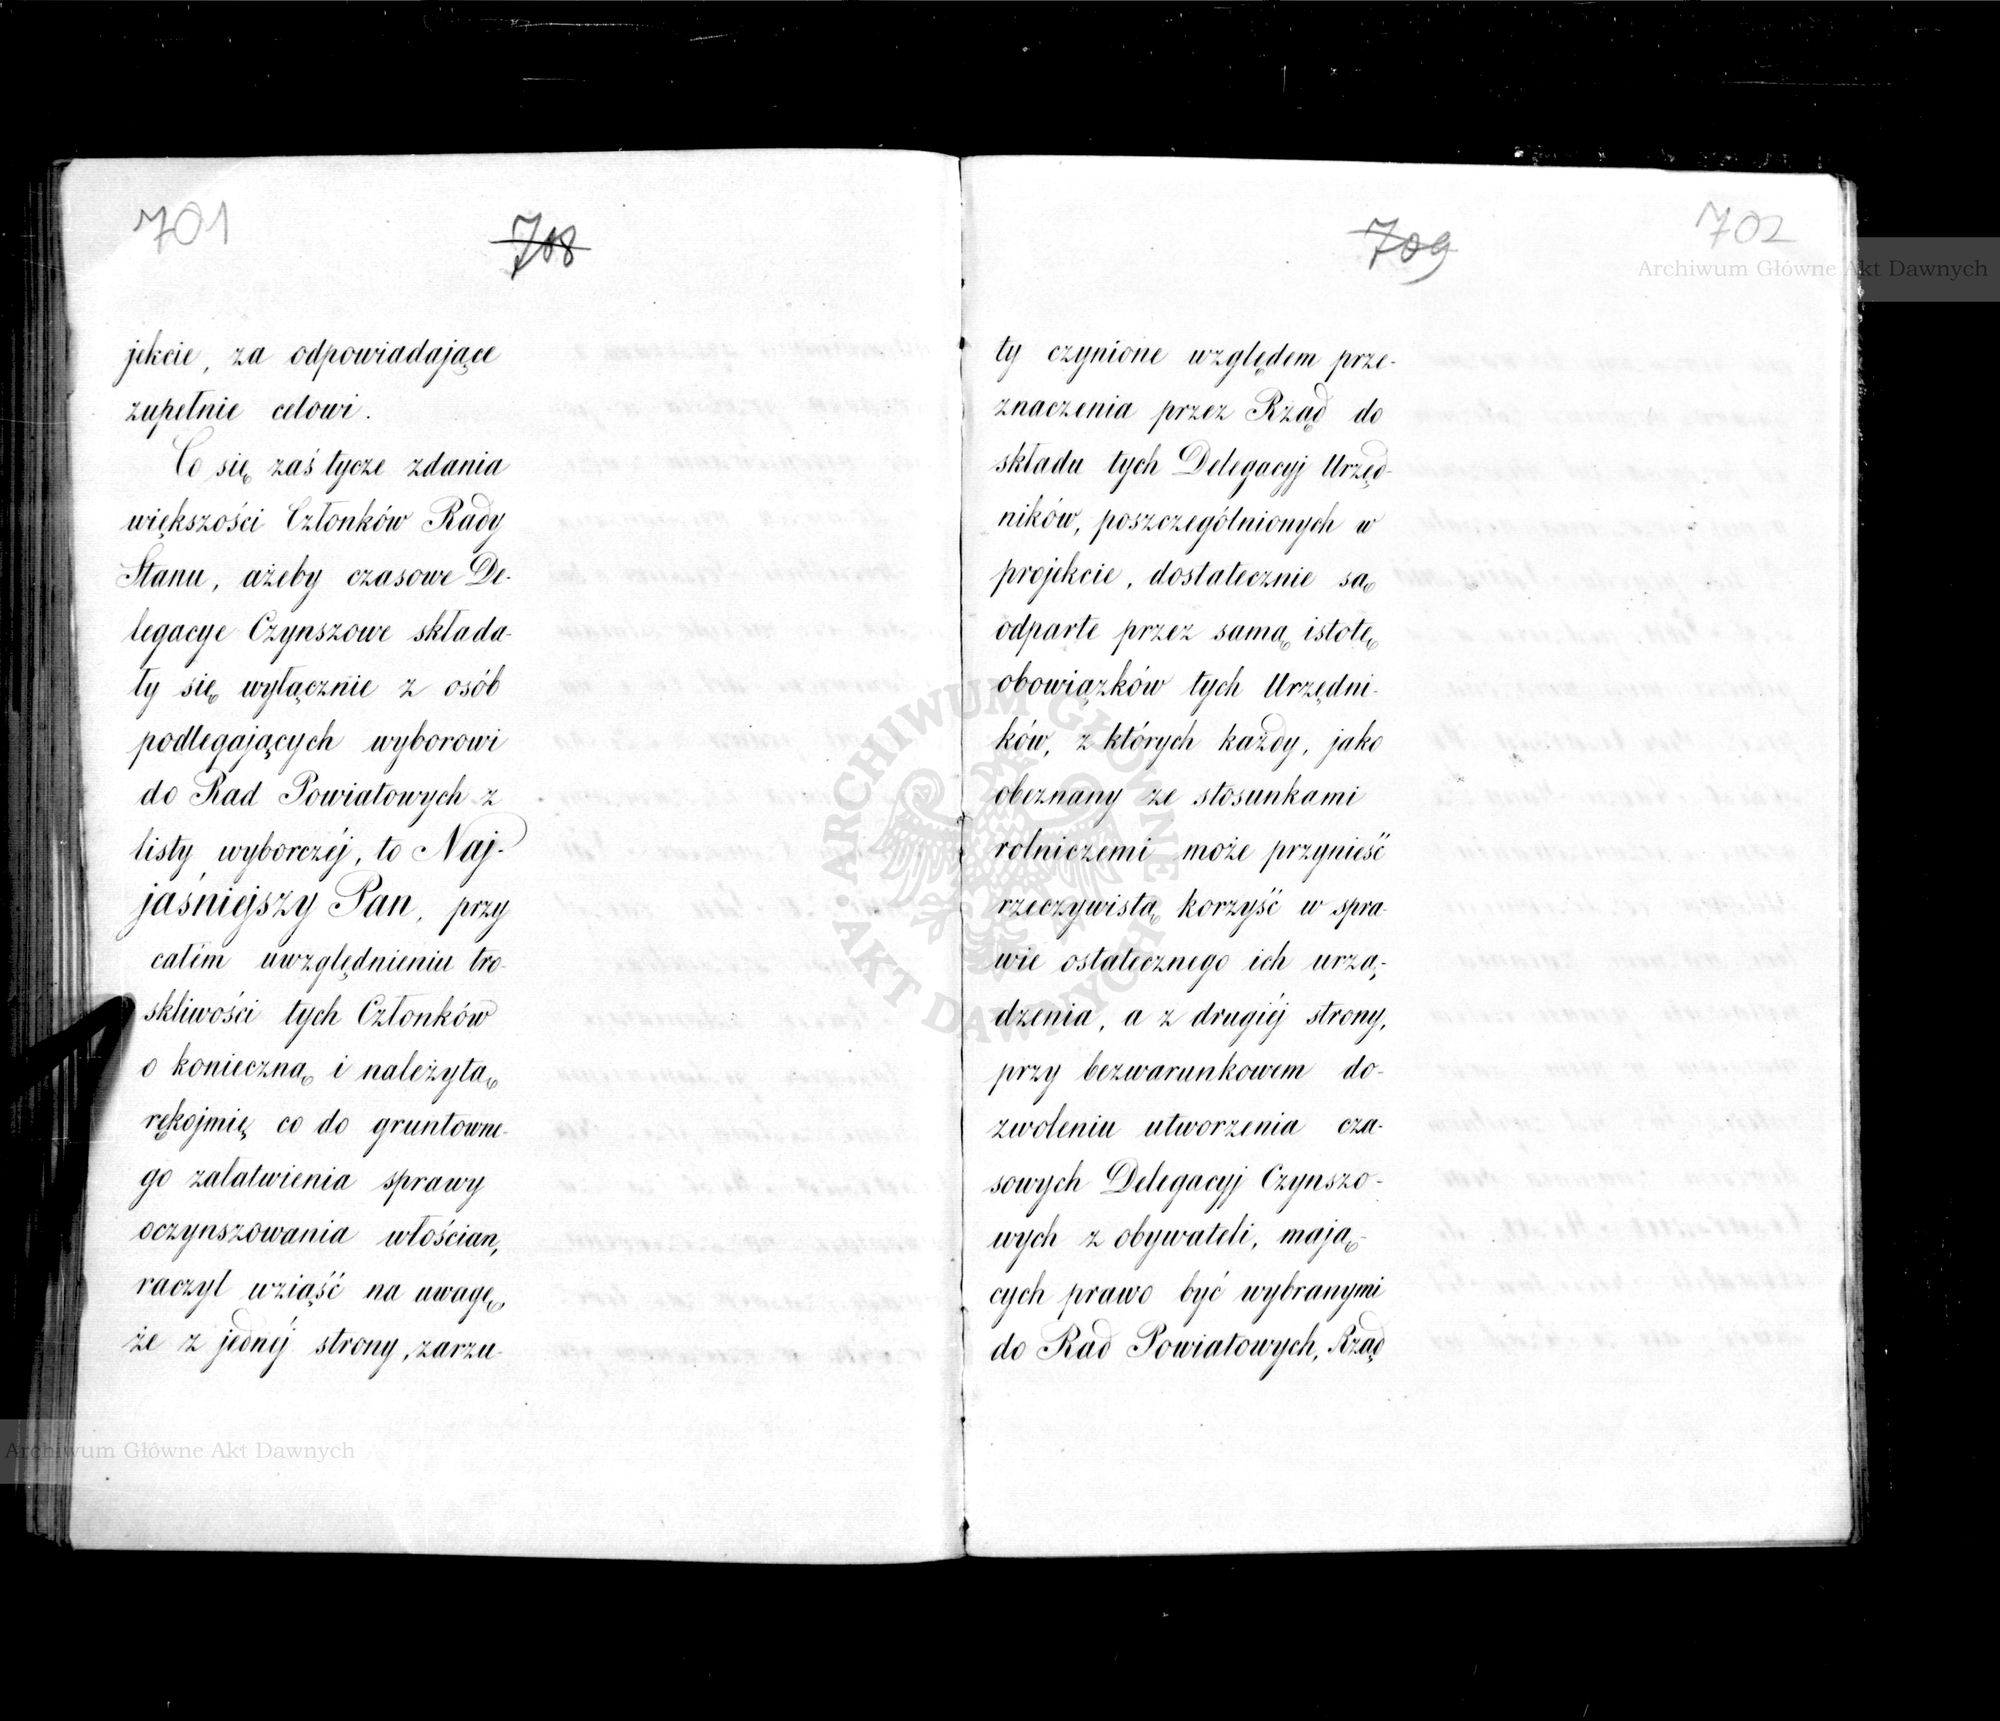 701
708
jekcie, za odpowiadające
zupełnie celowi.
Co się zaś tycze zdania
większości Członków Rady
Stanu, ażeby czasowe De-
legacye Czynszowe składa-
ły się wyłącznie z osób
podlegających wyborowi
do Rad Powiatowych z
listy wyborczéj, to Naj-
jaśniejszy Pan, przy
całém uwzględnieniu tro-
skliwości tych Członków
o konieczną i należytą
rękojmię co do gruntowne-
go załatwienia sprawy
oczynszowania włościan,
raczył wziąść na uwagę,
że z jednéj strony, zarzu-
709
702
ty czynione względem prze-
znaczenia przez Rząd do
składu tych Delegacyj Urzęd-
ników, poszczególnionych w
projekcie, dostatecznie są
odparte przez samą istotę
obowiązków tych Urzędni-
ków, z których każdy, jako
obeznany ze stosunkami
rolniczemi może przynieść
rzeczywistą korzyść w spra-
wie ostatecznego ich urzą-
dzenia, a z drugiéj strony,
przy bezwarunkowem do-
zwoleniu utworzenia cza-
sowych Delegacyj Czynszo-
wych z obywateli, mają-
cych prawo być wybranymi
do Rad Powiatowych, Rząd
Archiwum Główne Akt Dawnych
Archiwum Główne Akt Dawnych
ARCHIWUM GŁÓWNE AKT DAWNYCH